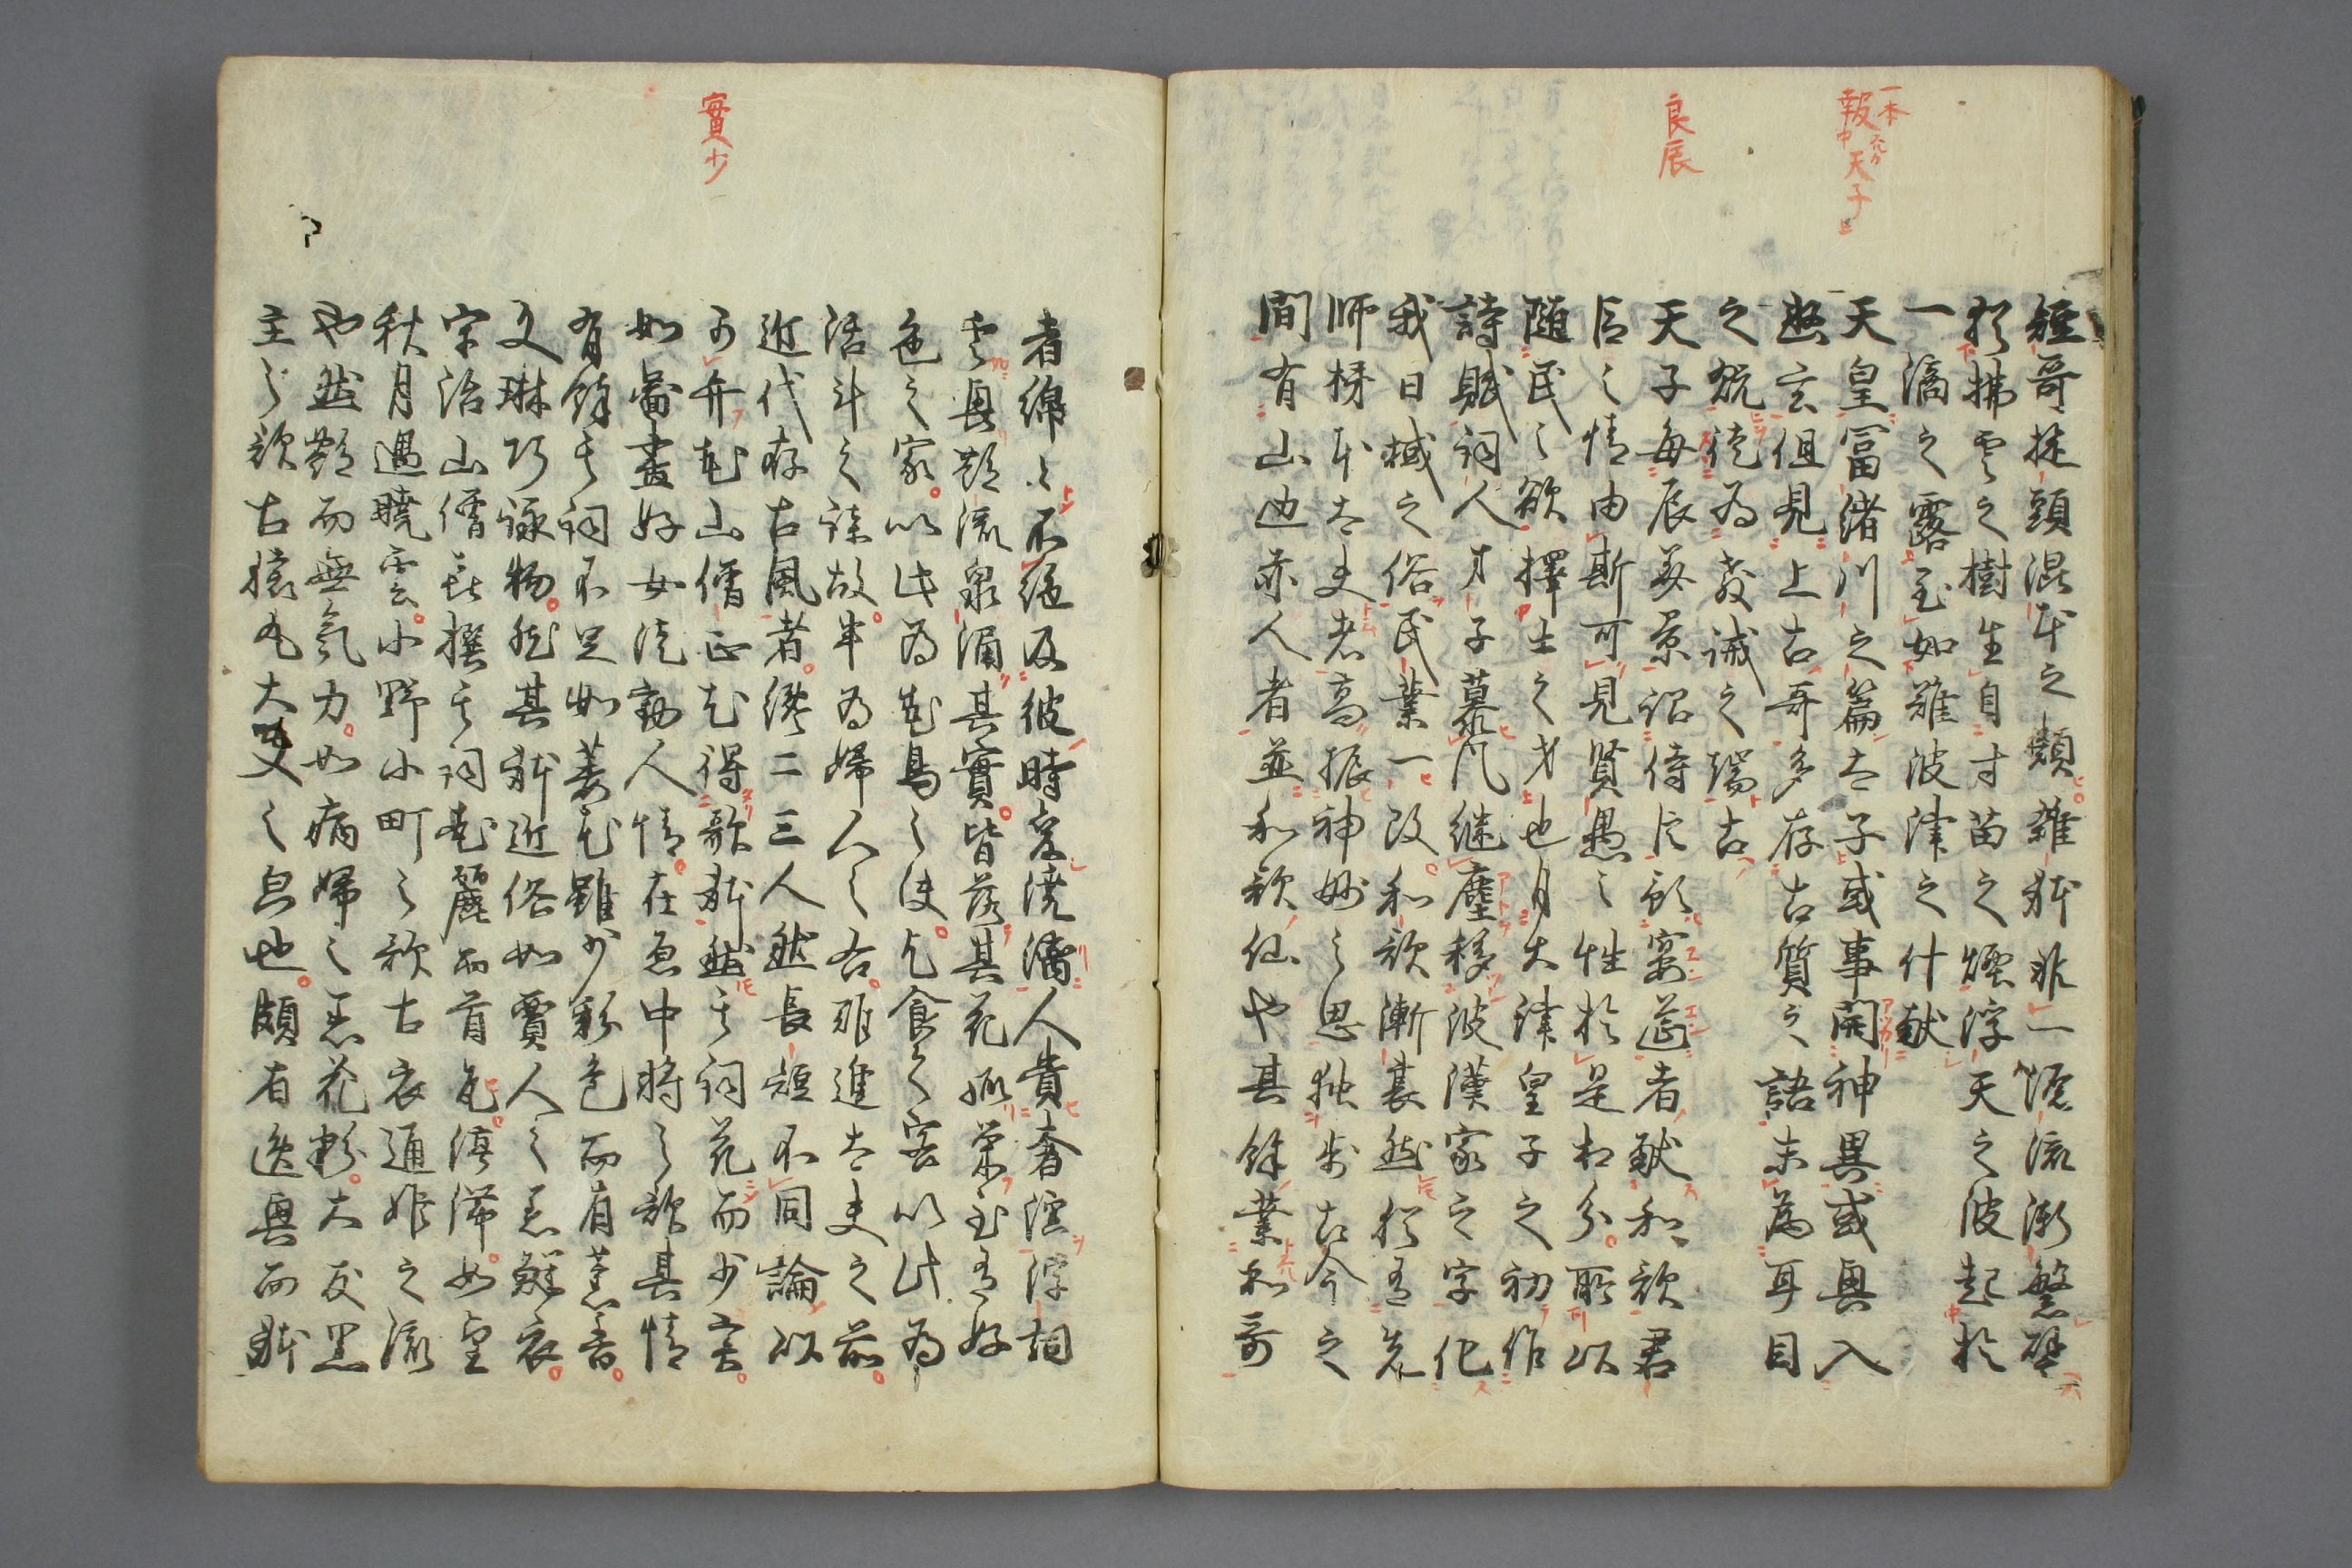 一本
報 天子
良辰
短哥旋頭混本之類雑躰非一源流漸繁譬
猶拂雲之樹生自寸苗之煙浮天之波起於
一滴之露至如難波津之什献
天皇冨緒川之篇太子或事開神異或興入
幽玄但見上古哥多存古質之語未為耳目
之翫徒為教誡之端古
天子毎辰美景詔侍臣預宴莚者献和歌君
臣之情由斯可見賢愚之性於是相分所以
随民之欲擇士之才也自大津皇子之初作
詩賦詞人才子慕風継塵移彼漢家之字化
我日域之俗民業一改和歌漸衰然猶有先
師柿本太夫者高振神妙之思独歩古今之
間有山邊赤人者並和歌仙也其餘業和哥
實少
者綿々不絶及彼時変澆漓人貴奢淫浮詞
雲興艶流泉涌其實皆落其花孤栄至有好
色之家以此為花鳥之使乞食之客以此為
活計之謀故半為婦人之右難進大夫之前
近代存古風者纔二三人然長短不同論以
可弁花山僧正尤得歌躰然其詞花而少実
如啚畫好女徒動人情在原中将之歌其情
有餘其詞不足如萎花雖少彩色而有薫香
文琳巧詠物然其躰近俗如賈人之着鮮衣
宇治山僧喜撰其詞花麗而首尾停滞如望
秋月遇曉雲小野小町之歌古衣通姫之流
也然艶而無氣力如病婦之着花粉大友黒
主之歌古猿丸大夫之次也頗有逸興而躰